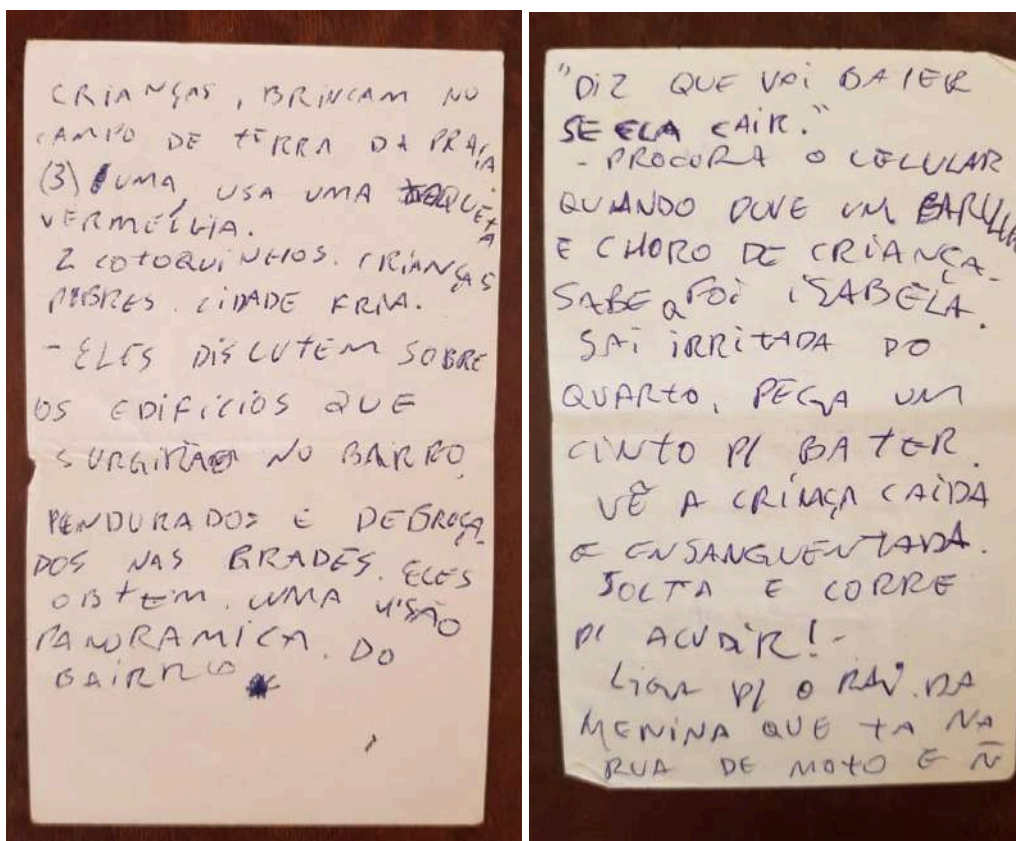 CRIANÇAS, BRINCAM NO
CAMPO DE TERRA DA PRAÇA.
(3) UMA, USA UMA JAQUETA
VERMELHA.
2 COTOQUINHOS. CRIANÇAS
POBRES. CIDADE FRIA.
- ELES DISCUTEM SOBRE
OS EDIFÍCIOS QUE
SURGIRÃO NO BAIRRO.
PENDURADOS E DEBRUÇA-
DOS NAS GRADES. ELES
OBTEM. UMA VISÃO
PANORAMICA. DO
BAIRRO
"DIZ QUE VAI BATER
SE ELA CAIR."
- PROCURA O CELULAR
QUANDO OUVE UM
E CHORO DE CRIANÇA.
SABE Q FOI ISABELA.
SAI IRRITADA DO
QUARTO, PEGA UM
CINTO P/ BATER.
VÊ A CRIANÇA CAÍDA
E ENSANGUENTADA.
SOLTA E CORRE
P/ ACUDIR! -
LIGA P/ O PAI. DA
MENINA QUE TA NA
RUA DE MOTO E Ñ